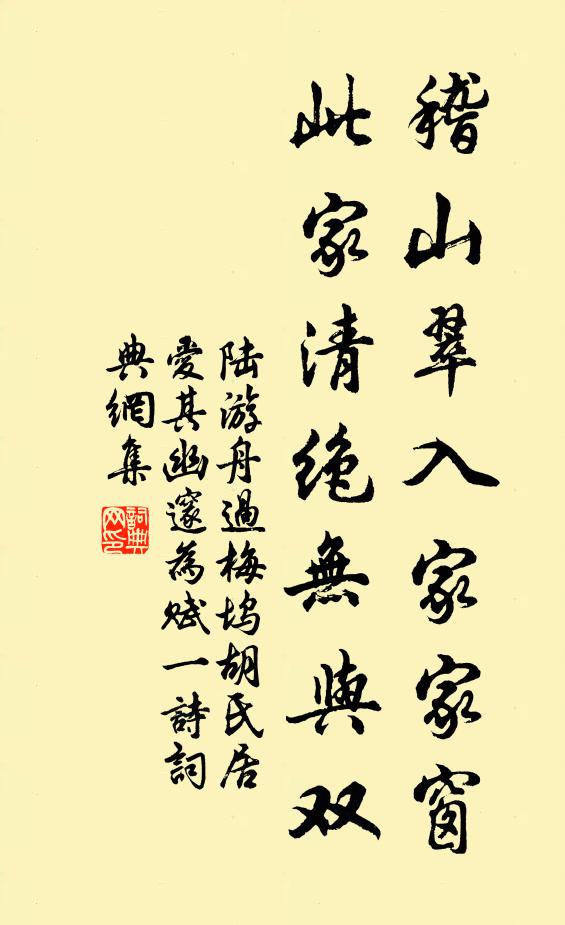 稽山翠入家家窗
此家清绝無與双
陆游舟過梅坞胡氏居
愛其幽邃為赋一詩詞
典網集
詞典
网印